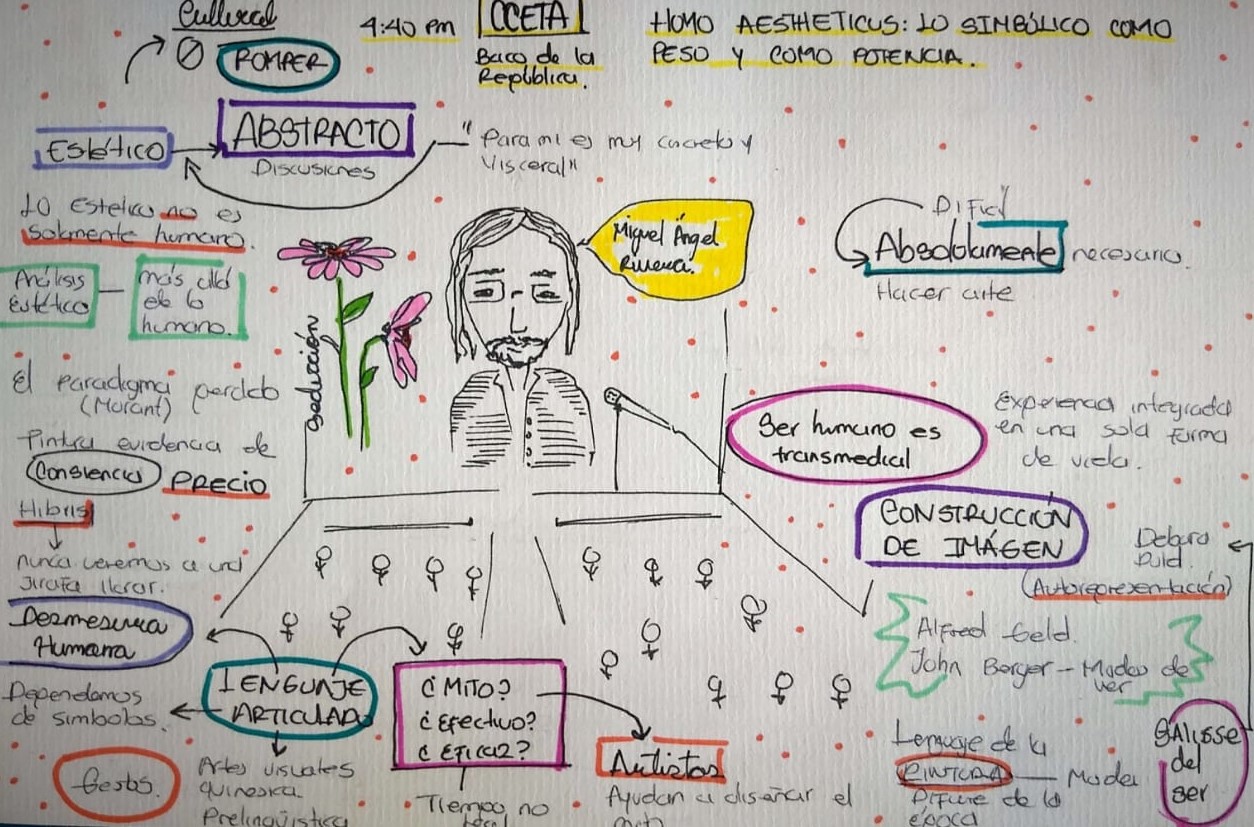 Cultural
ROMPER
4:40 pm
OCETA
Baco de la
República.
HOMO AESTHETICUS: LO SIMBÓLICO COMO
PESO Y COMO POTENCIA.
Estético
ABSTRACTO
Discusiones
"Para mi es muy concreto y
Visceral"
LO Estetico no es
solamente humano.
Análisis
Estético
más allá
de lo
humano.
seducción
Miguel Ángel
Rivera.
Difícil
Absolutamente necesario.
Hacer arte
El Paradigma perdido
(Morant)
Pintura evidencia de
Consiencia PRECIO
Hibris
nunca veremos a una
Jirafa llorar.
Desmesura
Humana
Ser humano es
transmedial
Experiencia integrada
en una sola forma
de vida.
CONSTRUCCIÓN
DE IMÁGEN
(Autorepresentación)
Alfred Geld.
John Berger - Modos de
ver
LENGUAJE
ARTICULADO
Dependemos
de simbolos.
Gestos.
Artes visuales
quinesica
Prelingüistica
¿MITO?
¿Efectivo?
¿EFICAZ?
Tiempo no
Artistas
Ayudan a diseñar el
Lenguaje de la
PINTURA
Difiere de la
época
del
ser